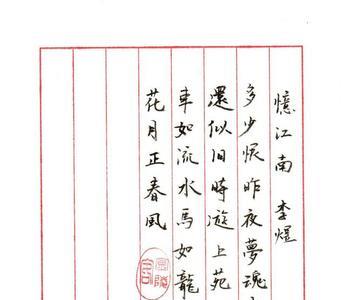 憶江南 李煜
多少恨昨夜夢魂
還似旧時遊上苑
車如流水馬如龍
花月正春風